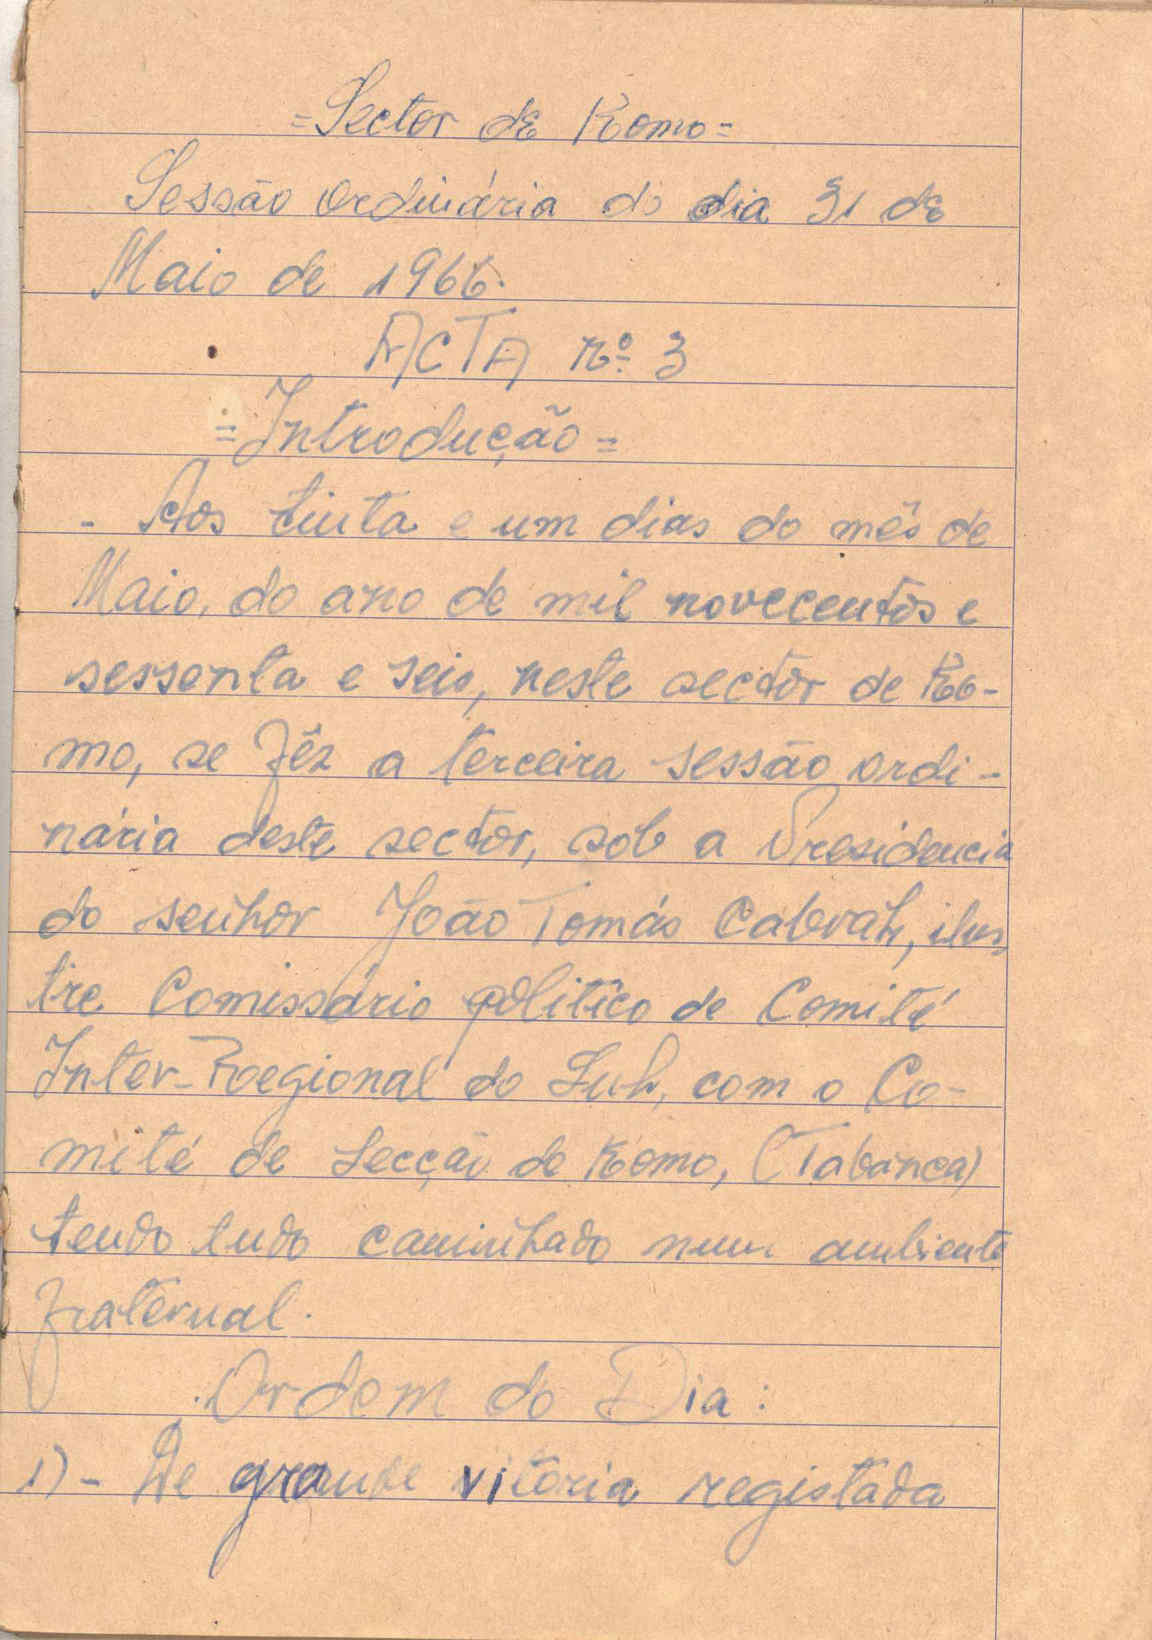 =Sector de Komo=
Sessão Ordinária do dia 31 de
Maio de 1966.
ACTA nº 3
=Introdução=
- Aos tinta e um dias do mês de
Maio, do ano de mil novecentos e
sessenta e seis, neste sector de Ko-
mo, se fêz a terceira sessão ordi-
nária deste sector, sob a Presidencia
do senhor João Tomás Cabral, ilus
tre Comissário politico de Comité
Inter-Regional do Sul, com o Co-
mité de Secção de Komo, (Tabanca)
tendo tudo caminhado num ambiente
fraternal.
Ordem do Dia:
1) - De grande vitoria registada